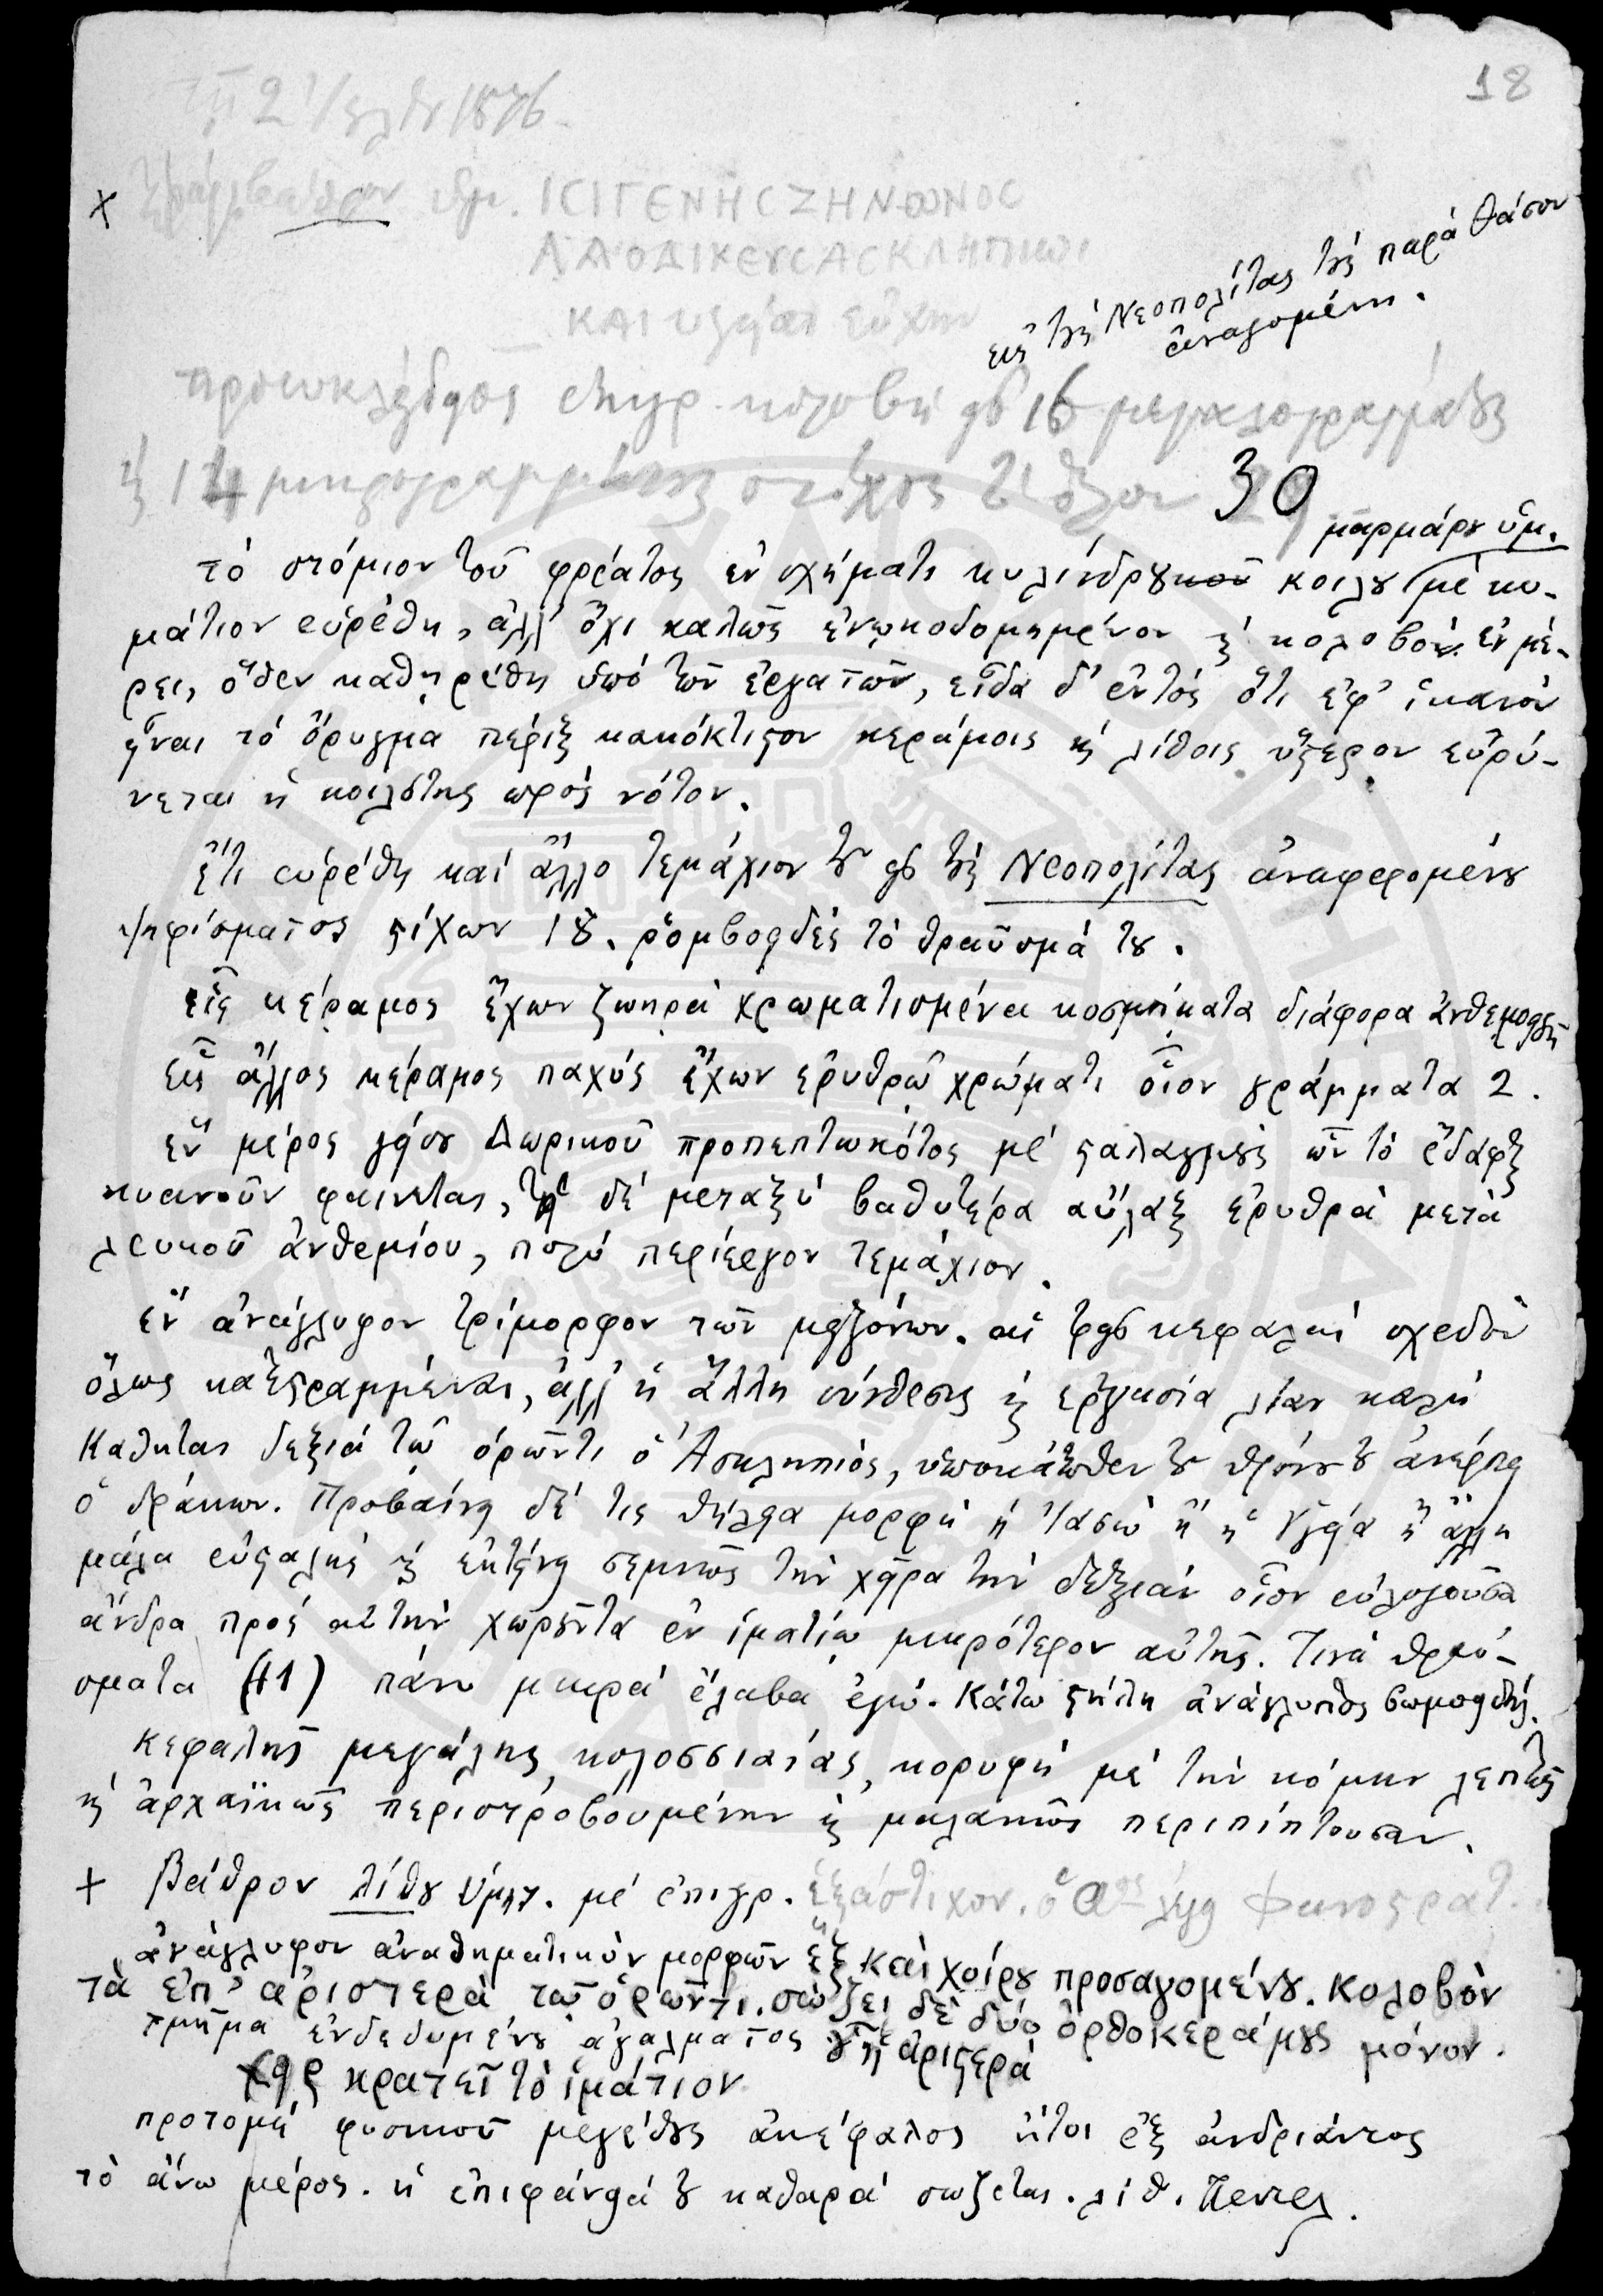 18
τῇ 2 Ἰουλίου 1876
× βάθρον ὑμ. ΙΣΙΓΕΝΗΣ ΖΗΝΩΝΟΣ
ΛΑΟΔΙΚΕΥΣ ΑΣΚΛΗΠΙΩΙ
ΚΑΙ Υγείαι εὐχήν
εἰς τοὺς Νεοπολίτας τοὺς παρὰ Θάσον
ἀναγομένη.
ἐπιγρ. κολοβὴ 16 μεγαλογραμμάτους
καὶ 14 μικρογραμμάτους στίχους τὸ ὅλον 30
μαρμάρου ὑμ.
τὸ στόμιον τοῦ φρέατος ἐν σχήματι κυλίνδρου κοίλου μὲ κυ-
μάτιον εὑρέθη, ἀλλ' ὄχι καλῶς ἐνῳκοδομημένον καὶ κολοβὸν ἐν μέ-
ρει, ὅθεν καθῃρέθη ὑπὸ τῶν ἐργατῶν, εἶδα δ' ἐντὸς ὅτι ἐφ' ἱκανὸν
εἶναι τὸ ὄρυγμα πέριξ κακόκτιστον κεράμοις καὶ λίθοις ὕστερον εὐρύ-
νεται ἡ κοιλότης πρὸς νότον.
Ἔτι εὑρέθη καὶ ἄλλο τεμάχιον τοῦ εἰς τοὺς Νεοπολίτας ἀναφερομένου
ψηφίσματος στίχων 18. ῥομβοειδὲς τὸ θραῦσμά του.
εἷς κέραμος ἔχων ζωηρὰ χρωματισμένα κοσμήματα διάφορα ἀνθεμοειδῆ
εἷς ἄλλος κέραμος παχὺς ἔχων ἐρυθρῷ χρώματι οἷον γράμματα 2.
ἓν μέρος γείσου Δωρικοῦ προπεπτωκότος μὲ σταλαγμοὺς ὧν τὸ ἔδαφος
κυανοῦν φαίνεται, ἡ δὲ μεταξὺ βαθυτέρα αὖλαξ ἐρυθρὰ μετὰ
λευκοῦ ἀνθεμίου, πολὺ περίεργον τεμάχιον.
ἓν ἀνάγλυφον τρίμορφον τῶν μειζόνων. αἱ τρεῖς κεφαλαὶ σχεδὸν
ὅλως κατεστραμμέναι, ἀλλ' ἡ ἄλλη σύνθεσις καὶ ἐργασία λίαν καλή
Κάθηται δεξιὰ τῷ ὁρῶντι ὁ Ἀσκληπιός, ὑποκάτωθεν τοῦ θρόνου ἀνέρπει
ὁ δράκων. Προβαίνει δέ τις θήλεια μορφὴ ἡ Ἰασὼ ἢ ἡ Ὑγεία ἢ ἄλλη
μάλα εὐσταλὴς καὶ ἐκτείνει σεμνῶς τὴν χεῖρα τὴν δεξιὰν οἷον εὐλογοῦσα
ἄνδρα πρὸς αὐτὴν χωροῦντα ἐν ἱματίῳ μικρότερον αὐτῆς. Τινὰ θραύ-
σματα (11) πάνυ μικρὰ ἔλαβα ἐγώ. Κάτω στήλη ἀνάγλυπτος βωμοειδής.
Κεφαλῆς μεγάλης, κολοσσιαίας, κορυφὴ μὲ τὴν κόμην λεπτῶς
καὶ ἀρχαϊκῶς περιστροβουμένην καὶ μαλακῶς περιπίπτουσαν.
+ Βάθρον λίθου ὑμητ. μὲ ἐπιγρ. ἑξάστιχον.
ἀνάγλυφον ἀναθηματικὸν μορφῶν ἓξ καὶ χοίρου προσαγομένου. Κολοβὸν
τὰ ἐπ' ἀριστερὰ τῷ ὁρῶντι. σώζει δὲ δύο ὀρθοκεράμους μόνον.
τμῆμα ἐνδεδυμένου ἀγάλματος οὗ ἡ ἀριστερὰ
χεὶρ κρατεῖ τὸ ἱμάτιον
προτομὴ φυσικοῦ μεγέθους ἀκέφαλος ἤτοι ἐξ ἀνδριάντος
τὸ ἄνω μέρος. ἡ ἐπιφάνειά του καθαρὰ σώζεται. λίθ. Πεντελ.